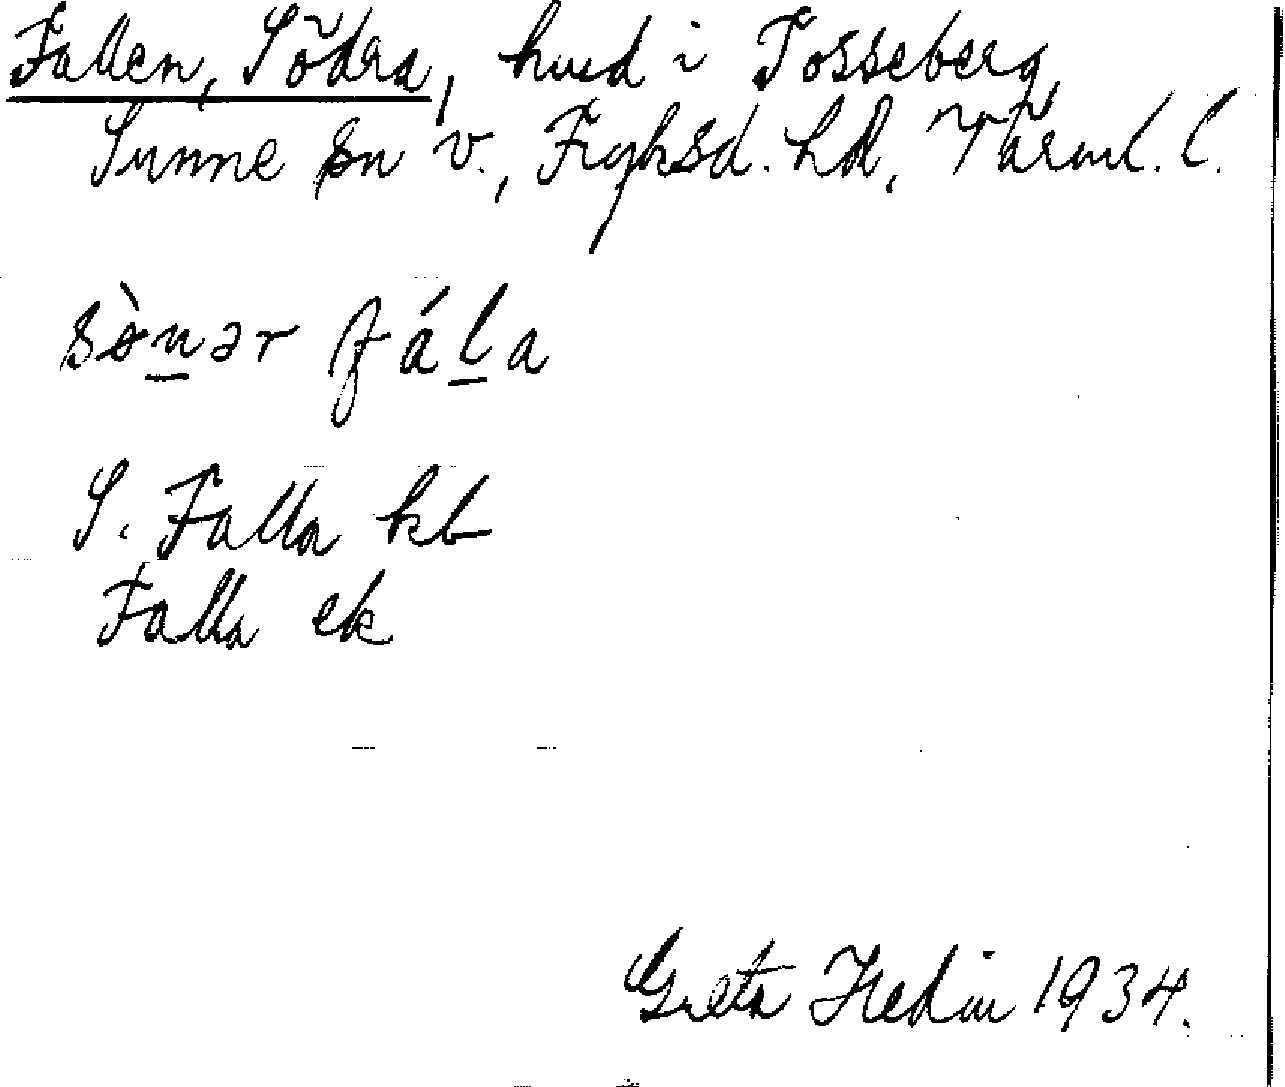 Fallen, Södra, hmd i Tosseberg,
Sunne sn v., Fryksd. hd, Värml. l.
sø̀n̲ər fál̲a
S. Falla kb
Falla ek
Greta Hedin 1934.